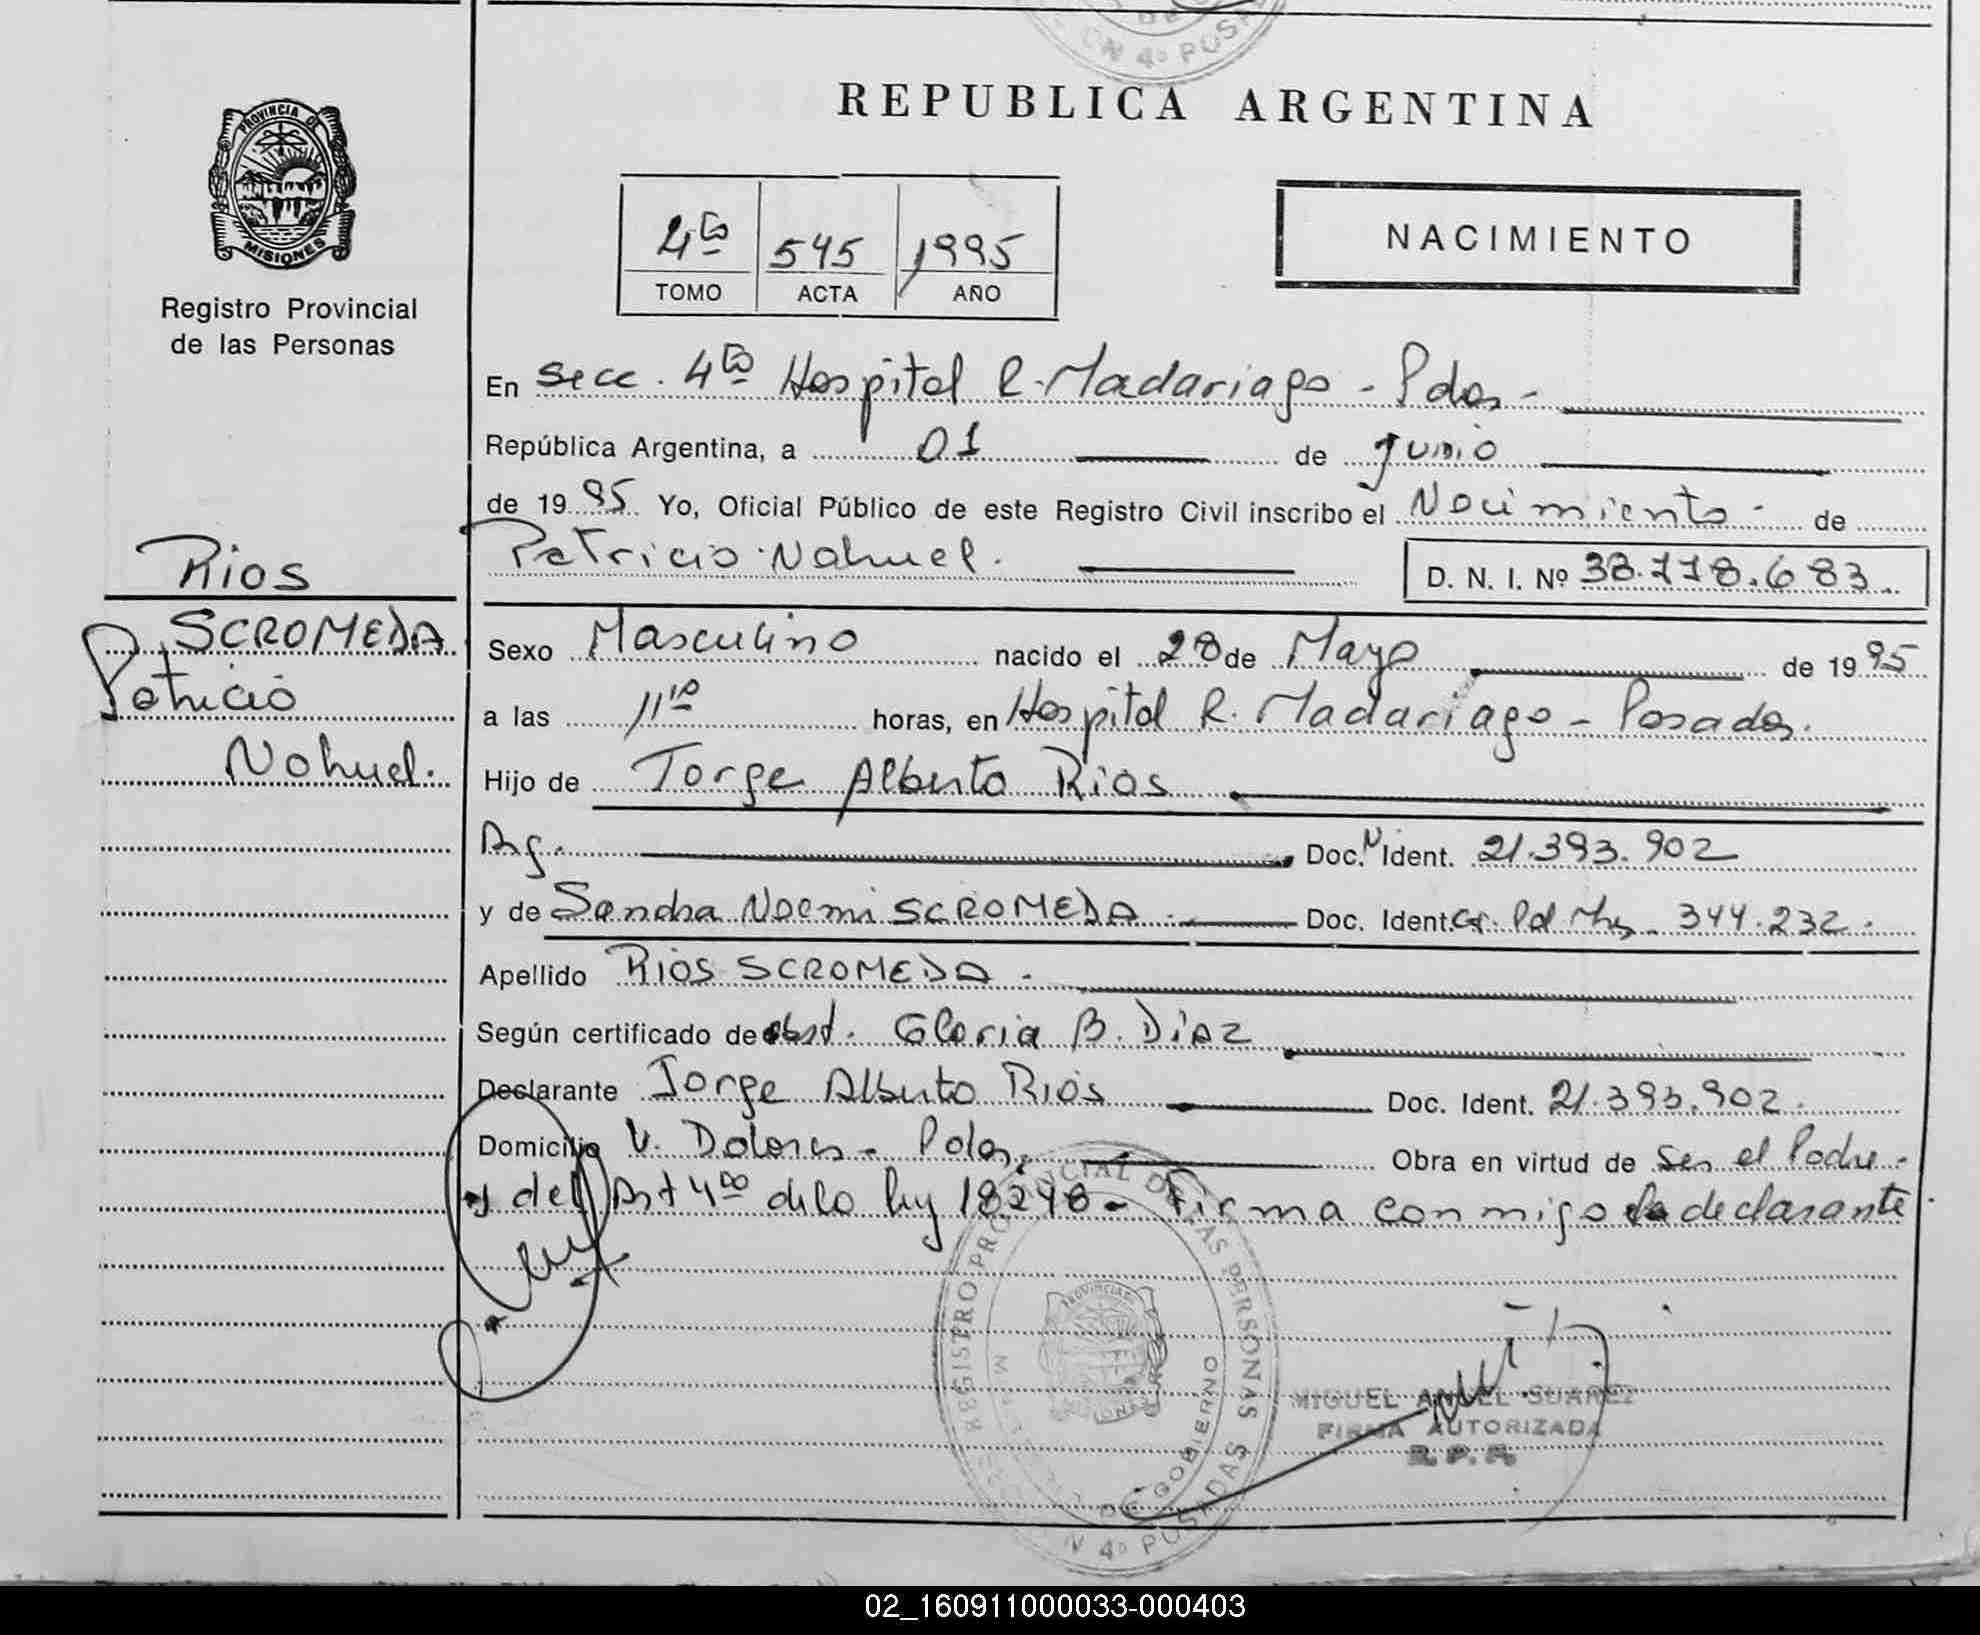 DE
ON 4º POSA
PROVINCIA DE
MISIONES
Registro Provincial
de las Personas
REPUBLICA ARGENTINA
4to 545 1995
TOMO ACTA AÑO
NACIMIENTO
En secc. 4ta Hospital R. Madariaga - Pdas -
República Argentina, a 01 de Junio
de 1995 Yo, Oficial Público de este Registro Civil inscribo el Nacimiento - de
Patricio Nahuel. D. N. I. Nº 38.778.683.
Rios
SCROMEDA
Patricio
Nahuel.
Sexo Masculino nacido el 28 de Mayo de 1995
a las 11 10 horas, en Hospital R. Madariaga - Posadas.
Hijo de Jorge Alberto Rios
Arg. Doc. N Ident. 21.393.902
y de Sandra Noemi SCROMEDA - Doc. Ident. 344.232.
Apellido RIOS SCROMEDA -
Según certificado de obst. Gloria B. Diaz
Declarante Jorge Alberto Rios Doc. Ident. 21.393.902.
Domicilio V. Dolores - Pdas, Obra en virtud de ser el Padre -
y del Art 4to de la ley 18248 - Firma conmigo la declarante
REGISTRO PROVINCIAL DE LAS PERSONAS
PROVINCIA
DE GOBIERNO
N 4º POSADAS
MIGUEL ANGEL SUAREZ
FIRMA AUTORIZADA
R. P. P.
02_160911000033-000403